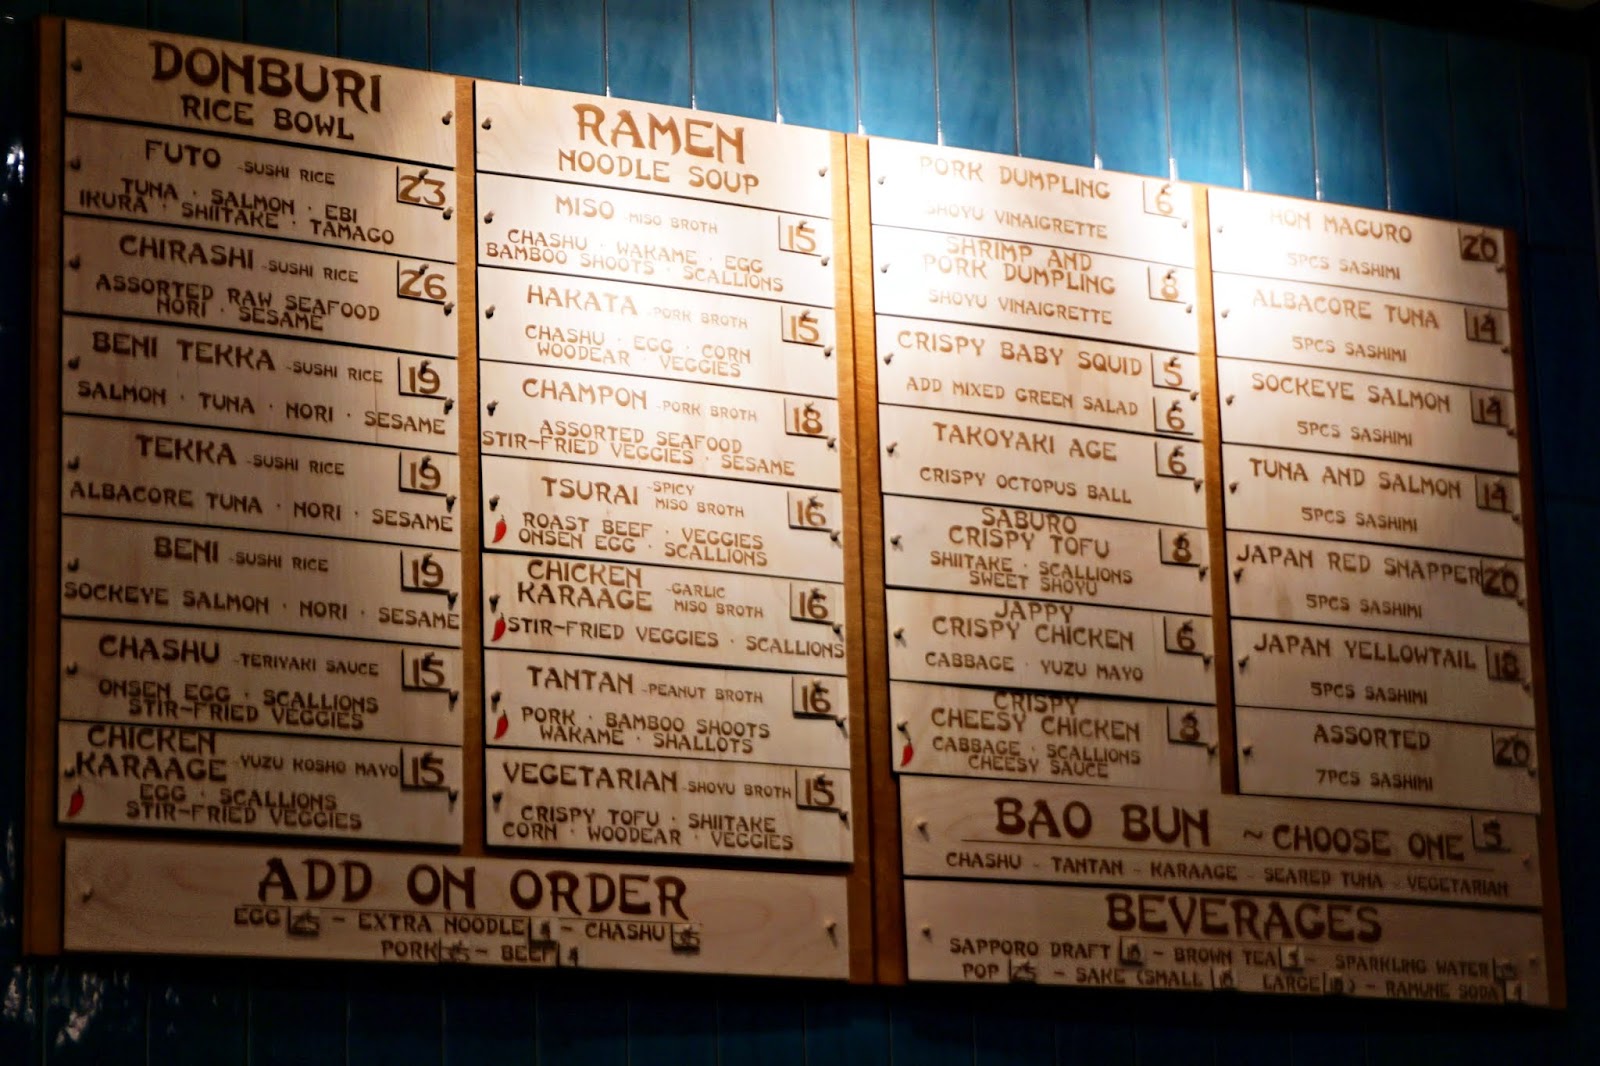 DONBURI
RICE BOWL
FUTO -SUSHI RICE 23
TUNA · SALMON · EBI
IKURA · SHIITAKE · TAMAGO
CHIRASHI -SUSHI RICE 26
ASSORTED RAW SEAFOOD
NORI · SESAME
BENI TEKKA -SUSHI RICE 19
SALMON · TUNA · NORI · SESAME
TEKKA -SUSHI RICE 19
ALBACORE TUNA · NORI · SESAME
BENI -SUSHI RICE 19
SOCKEYE SALMON · NORI · SESAME
CHASHU -TERIYAKI SAUCE 15
ONSEN EGG · SCALLIONS
STIR-FRIED VEGGIES
CHICKEN
KARAAGE -YUZU KOSHO MAYO 15
EGG · SCALLIONS
STIR-FRIED VEGGIES
RAMEN
NOODLE SOUP
MISO -MISO BROTH 15
CHASHU · WAKAME · EGG
BAMBOO SHOOTS · SCALLIONS
HAKATA -PORK BROTH 15
CHASHU · EGG · CORN
WOODEAR · VEGGIES
CHAMPON -PORK BROTH 18
ASSORTED SEAFOOD
STIR-FRIED VEGGIES · SESAME
TSURAI -SPICY MISO BROTH 16
ROAST BEEF · VEGGIES
ONSEN EGG · SCALLIONS
CHICKEN
KARAAGE -GARLIC MISO BROTH 16
STIR-FRIED VEGGIES · SCALLIONS
TANTAN -PEANUT BROTH 16
PORK · BAMBOO SHOOTS
WAKAME · SHALLOTS
VEGETARIAN -SHOYU BROTH 15
CRISPY TOFU · SHIITAKE
CORN · WOODEAR · VEGGIES
ADD ON ORDER
EGG - EXTRA NOODLE - CHASHU
PORK - BEEF 4
PORK DUMPLING 6
SHOYU VINAIGRETTE
SHRIMP AND
PORK DUMPLING 8
SHOYU VINAIGRETTE
CRISPY BABY SQUID 5
ADD MIXED GREEN SALAD 6
TAKOYAKI AGE 6
CRISPY OCTOPUS BALL
SABURO
CRISPY TOFU 8
SHIITAKE · SCALLIONS
SWEET SHOYU
JAPPY
CRISPY CHICKEN 6
CABBAGE · YUZU MAYO
CRISPY
CHEESY CHICKEN 8
CABBAGE · SCALLIONS
CHEESY SAUCE
HON MAGURO 20
5PCS SASHIMI
ALBACORE TUNA 14
5PCS SASHIMI
SOCKEYE SALMON 14
5PCS SASHIMI
TUNA AND SALMON 14
5PCS SASHIMI
JAPAN RED SNAPPER 20
5PCS SASHIMI
JAPAN YELLOWTAIL 18
5PCS SASHIMI
ASSORTED 20
7PCS SASHIMI
BAO BUN ~ CHOOSE ONE 5
CHASHU - TANTAN - KARAAGE - SEARED TUNA - VEGETARIAN
BEVERAGES
SAPPORO DRAFT - BROWN TEA - SPARKLING WATER
POP - SAKE (SMALL LARGE ) - RAMUNE SODA 4